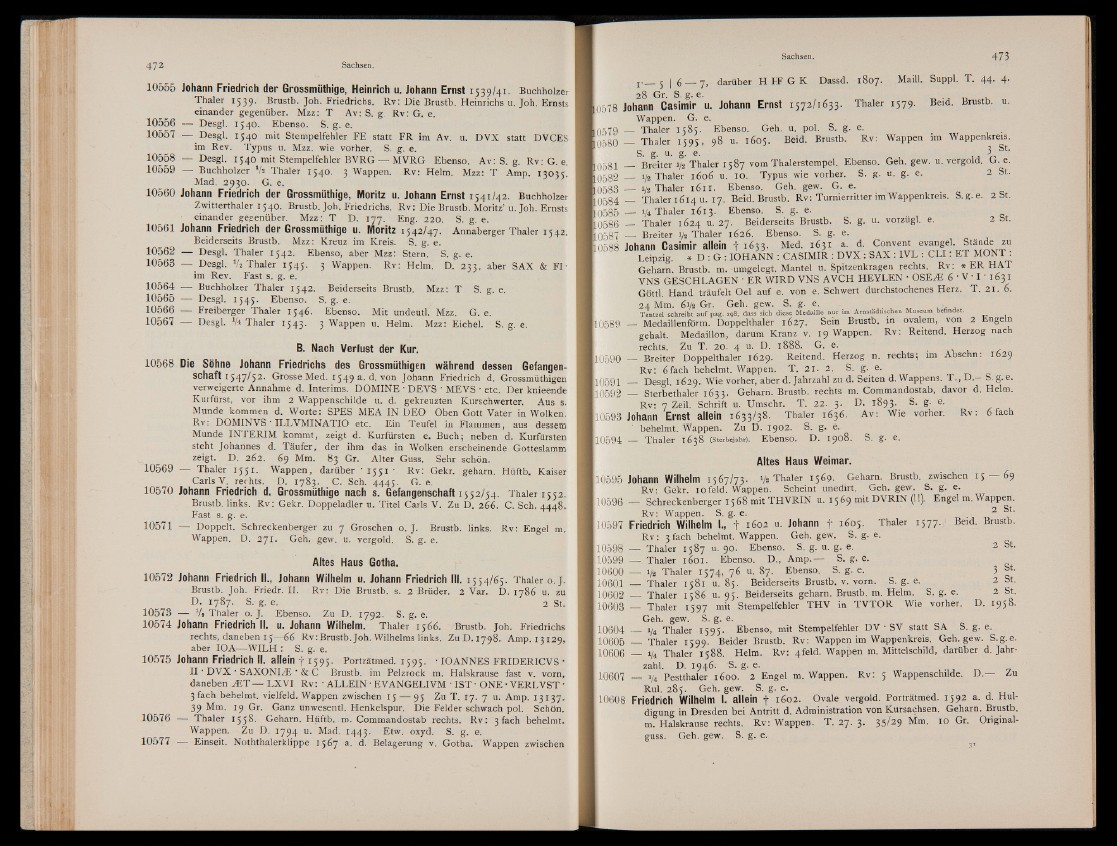 472
Sachsen.
10555 Johann Friedrich der Grossmüthige, Heinrich u. Johann Ernst 1539/41. Buchholzer
Thaler 1539. Brustb. Joh. Friedrichs. Rv: Die Brustb. Heinrichs u. Joh. Ernsts
einander gegenüber. Mzz: T Av: S. g. Rv: G. e.
10556 — Desgl. 1540. Ebenso. S. g. e.
10557 — Desgl. 1540 mit Stempelfehler FE statt FR im Av. u. DVX statt DVCES
im Rev. Typus u. Mzz. wie vorher. S. g. e.
10558 — Desgl. 1540 mit Stempelfehler BVRG — MVRG Ebenso. Av: S. g. Rv: G. e.
10559 — Buchholzer ½ Thaler 1540. 3 Wappen. Rv: Helm. Mzz: T Amp. 13035.
Mad. 2930. G. e.
10560 Johann Friedrich der Grossmüthige, Moritz u. Johann Ernst 1541/42. Buchholzer
Zwitterthaler 1540. Brustb. Joh. Friedrichs. Rv: Die Brustb. Moritz' u. Joh. Ernsts
einander gegenüber. Mzz: T D. 177. Eng. 220. S. g. e.
10561 Johann Friedrich der Grossmüthige u. Moritz 1542/47. Annaberger Thaler 1542.
Beiderseits Brustb. Mzz: Kreuz im Kreis. S. g. e.
10562 — Desgl. Thaler 1542. Ebenso, aber Mzz: Stern. S. g. e.
10563 — Desgl. ½ Thaler 1545. 3 Wappen. Rv: Helm. D. 233, aber SAX & FI·
im Rev. Fast s. g. e.
10564 — Buchholzer Thaler 1542. Beiderseits Brustb. Mzz: T S. g. e.
10565 — Desgl. 1545. Ebenso. S. g. e.
10566 — Freiberger Thaler 1546. Ebenso. Mit undeutl. Mzz. G. e.
10567 — Desgl. ¼ Thaler 1543. 3 Wappen u. Helm. Mzz: Eichel. S. g. e.
B. Nach Verlust der Kur.
10568 Die Söhne Johann Friedrichs des Grossmüthigen während dessen Gefangen-
schaft 1547/52. Grosse Med. 1549 a. d. von Johann Friedrich d. Grossmüthigen
verweigerte Annahme d. Interims. DOMINE · DEVS · MEVS · etc. Der knieende
Kurfürst, vor ihm 2 Wappenschilde u. d. gekreuzten Kurschwerter. Aus s.
Munde kommen d. Worte: SPES MEA IN DEO Oben Gott Vater in Wolken.
Rv: DOMINVS · ILLVMINATIO etc. Ein Teufel in Flammen, aus dessem
Munde INTERIM kommt, zeigt d. Kurfürsten e. Buch; neben d. Kurfürsten
steht Johannes d. Täufer, der ihm das in Wolken erscheinende Gotteslamm
zeigt. D. 262. 69 Mm. 83 Gr. Alter Guss. Sehr schön.
10569 — Thaler 1551. Wappen, darüber · 1551 · Rv: Gekr. geharn. Hüftb. Kaiser
Carls V. rechts. D. 1783. C. Sch. 4445. G. e.
10570 Johann Friedrich d. Grossmüthige nach s. Gefangenschaft 1552/54. Thaler 1552.
Brustb. links. Rv: Gekr. Doppeladler u. Titel Carls V. Zu D. 266. C. Sch. 4448.
Fast s. g. e.
10571 — Doppelt. Schreckenberger zu 7 Groschen o. J. Brustb. links. Rv: Engel m.
Wappen. D. 271. Geh. gew. u. vergold. S. g. e.
Altes Haus Gotha.
10572 Johann Friedrich II., Johann Wilhelm u. Johann Friedrich III. 1554/65. Thaler o. J.
Brustb. Joh. Friedr. II. Rv: Die Brustb. s. 2 Brüder. 2 Var. D. 1786 u. zu
D. 1787. S. g. e. 2 St.
10573 — ½ Thaler o. J. Ebenso. Zu D. 1792. S. g. e.
10574 Johann Friedrich II. u. Johann Wilhelm. Thaler 1566. Brustb. Joh. Friedrichs
rechts, daneben 15—66 Rv: Brustb. Joh. Wilhelms links. Zu D. 1798. Amp. 13129,
aber IOA—WILH : S. g. e.
10575 Johann Friedrich II. allein † 1595. Porträtmed. 1595. · IOANNES FRIDERICVS ·
II · DVX · SAXONIÆ · & C Brustb. im Pelzrock m. Halskrause fast v. vorn,
daneben ÆT — LXVI Rv: · ALLEIN · EVANGELIVM · IST · ONE · VERLVST ·
3 fach behelmt. vielfeld. Wappen zwischen 15 — 95 Zu T. 17. 7 u. Amp. 13137.
39 Mm. 19 Gr. Ganz unwesentl. Henkelspur. Die Felder schwach pol. Schön.
10576 — Thaler 1558. Geharn. Hüftb. m. Commandostab rechts. Rv: 3 fach behelmt.
Wappen. Zu D. 1794 u. Mad. 1443. Etw. oxyd. S. g. e.
10577 — Einseit. Noththalerklippe 1567 a. d. Belagerung v. Gotha. Wappen zwischen
Sachsen.
473
1·— 5 | 6 — 7, darüber H HF G K Dassd. 1807. Maill. Suppl. T. 44. 4.
28 Gr. S. g. e.
10578 Johann Casimir u. Johann Ernst 1572/1633. Thaler 1579. Beid. Brustb. u.
Wappen. G. e.
10579 — Thaler 1585. Ebenso. Geh. u. pol. S. g. e.
10580 — Thaler 1595, 98 u. 1605. Beid. Brustb. Rv: Wappen im Wappenkreis.
S. g. u. g. e. 3 St.
10581 — Breiter ½ Thaler 1587 vom Thalerstempel. Ebenso. Geh. gew. u. vergold. G. e.
10582 — ½ Thaler 1606 u. 10. Typus wie vorher. S. g. u. g. e. 2 St.
10583 — ½ Thaler 1611. Ebenso. Geh. gew. G. e.
10584 — Thaler 1614 u. 17. Beid. Brustb. Rv: Turnierritter im Wappenkreis. S. g. e. 2 St.
10585 — ¼ Thaler 1613. Ebenso. S. g. e.
10586 — Thaler 1624 u. 27. Beiderseits Brustb. S. g. u. vorzügl. e. 2 St.
10587 — Breiter ½ Thaler 1626. Ebenso. S. g. e.
10588 Johann Casimir allein † 1633. Med. 1631 a. d. Convent evangel. Stände zu
Leipzig. * D : G : IOHANN : CASIMIR : DVX : SAX : IVL : CLI : ET MONT :
Geharn. Brustb. m. umgelegt. Mantel u. Spitzenkragen rechts. Rv: * ER HAT
VNS GESCHLAGEN · ER WIRD VNS AVCH HEYLEN · OSEÆ 6 · V · I · 1631
Göttl. Hand träufelt Oel auf e. von e. Schwert durchstochenes Herz. T. 21. 6.
24 Mm. 6½ Gr. Geh. gew. S. g. e.
Tentzel schreibt auf pag. 298, dass sich diese Medaille nur im Arnstädtischen Museum befindet.
10589 — Medaillenförm. Doppelthaler 1627. Sein Brustb. in ovalem, von 2 Engeln
gehalt. Medaillon, darum Kranz v. 19 Wappen. Rv: Reitend. Herzog nach
rechts. Zu T. 20. 4 u. D. 1888. G. e.
10590 — Breiter Doppelthaler 1629. Reitend. Herzog n. rechts; im Abschn: 1629
Rv: 6 fach behelmt. Wappen. T. 21. 2. S. g. e.
10591 — Desgl. 1629. Wie vorher, aber d. Jahrzahl zu d. Seiten d. Wappens. T., D.— S. g. e.
10592 — Sterbethaler 1633. Geharn. Brustb. rechts m. Commandostab, davor d. Helm.
Rv: 7 Zeil. Schrift u. Umschr. T. 22. 3. D. 1893. S. g. e.
10593 Johann Ernst allein 1633/38. Thaler 1636. Av: Wie vorher. Rv: 6 fach
behelmt. Wappen. Zu D. 1902. S. g. e.
10594 — Thaler 1638 (Sterbejahr). Ebenso. D. 1908. S. g. e.
Altes Haus Weimar.
10595 Johann Wilhelm 1567/73. ½ Thaler 1569. Geharn. Brustb. zwischen 15 — 69
Rv: Gekr. 10 feld. Wappen. Scheint unedirt. Geh. gew. S. g. e.
10596 — Schreckenberger 1568 mit THVRIN u. 1569 mit DVRIN (!!). Engel m. Wappen.
Rv: Wappen. S. g. e. 2 St.
10597 Friedrich Wilhelm I., † 1602 u. Johann † 1605. Thaler 1577. Beid. Brustb.
Rv: 3 fach behelmt. Wappen. Geh. gew. S. g. e.
10598 — Thaler 1587 u. 90. Ebenso. S. g. u. g. e. 2 St.
10599 — Thaler 1601. Ebenso. D., Amp.— S. g. e.
10600 — ½ Thaler 1574, 76 u. 87. Ebenso. S. g. e. 3 St.
10601 — Thaler 1581 u. 85. Beiderseits Brustb. v. vorn. S. g. e. 2 St.
10602 — Thaler 1586 u. 95. Beiderseits geharn. Brustb. m. Helm. S. g. e. 2 St.
10603 — Thaler 1597 mit Stempelfehler THV in TVTOR Wie vorher. D. 1958.
Geh. gew. S. g. e.
10604 — ¼ Thaler 1595. Ebenso, mit Stempelfehler DV · SV statt SA S. g. e.
10605 — Thaler 1599. Beider Brustb. Rv: Wappen im Wappenkreis. Geh. gew. S. g. e.
10606 — ¼ Thaler 1588. Helm. Rv: 4 feld. Wappen m. Mittelschild, darüber d. Jahr-
zahl. D. 1946. S. g. e.
10607 — ¼ Pestthaler 1600. 2 Engel m. Wappen. Rv: 5 Wappenschilde. D.— Zu
Rul. 285. Geh. gew. S. g. e.
10608 Friedrich Wilhelm I. allein † 1602. Ovale vergold. Porträtmed. 1592 a. d. Hul-
digung in Dresden bei Antritt d. Administration von Kursachsen. Geharn. Brustb.
m. Halskrause rechts. Rv: Wappen. T. 27. 3. 35/29 Mm. 10 Gr. Original-
guss. Geh. gew. S. g. e.
31